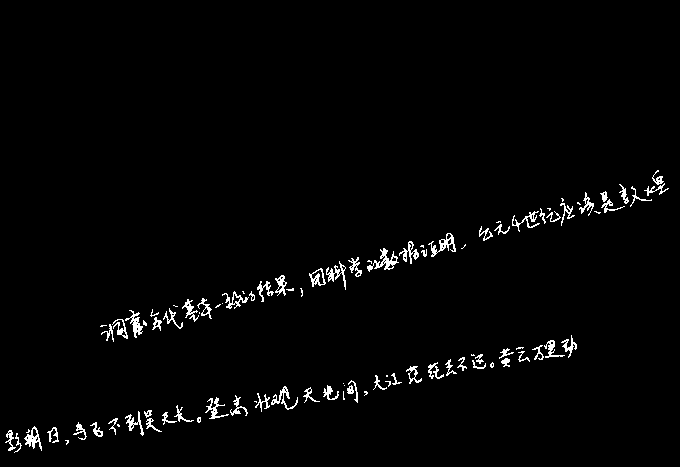 洞窟年代基本一致的结果,用科学的数据证明、公元4世纪应该是敦煌
影朝日,鸟飞不到吴天长。登高壮观天地间,大江茫茫去不还。黄云万里动